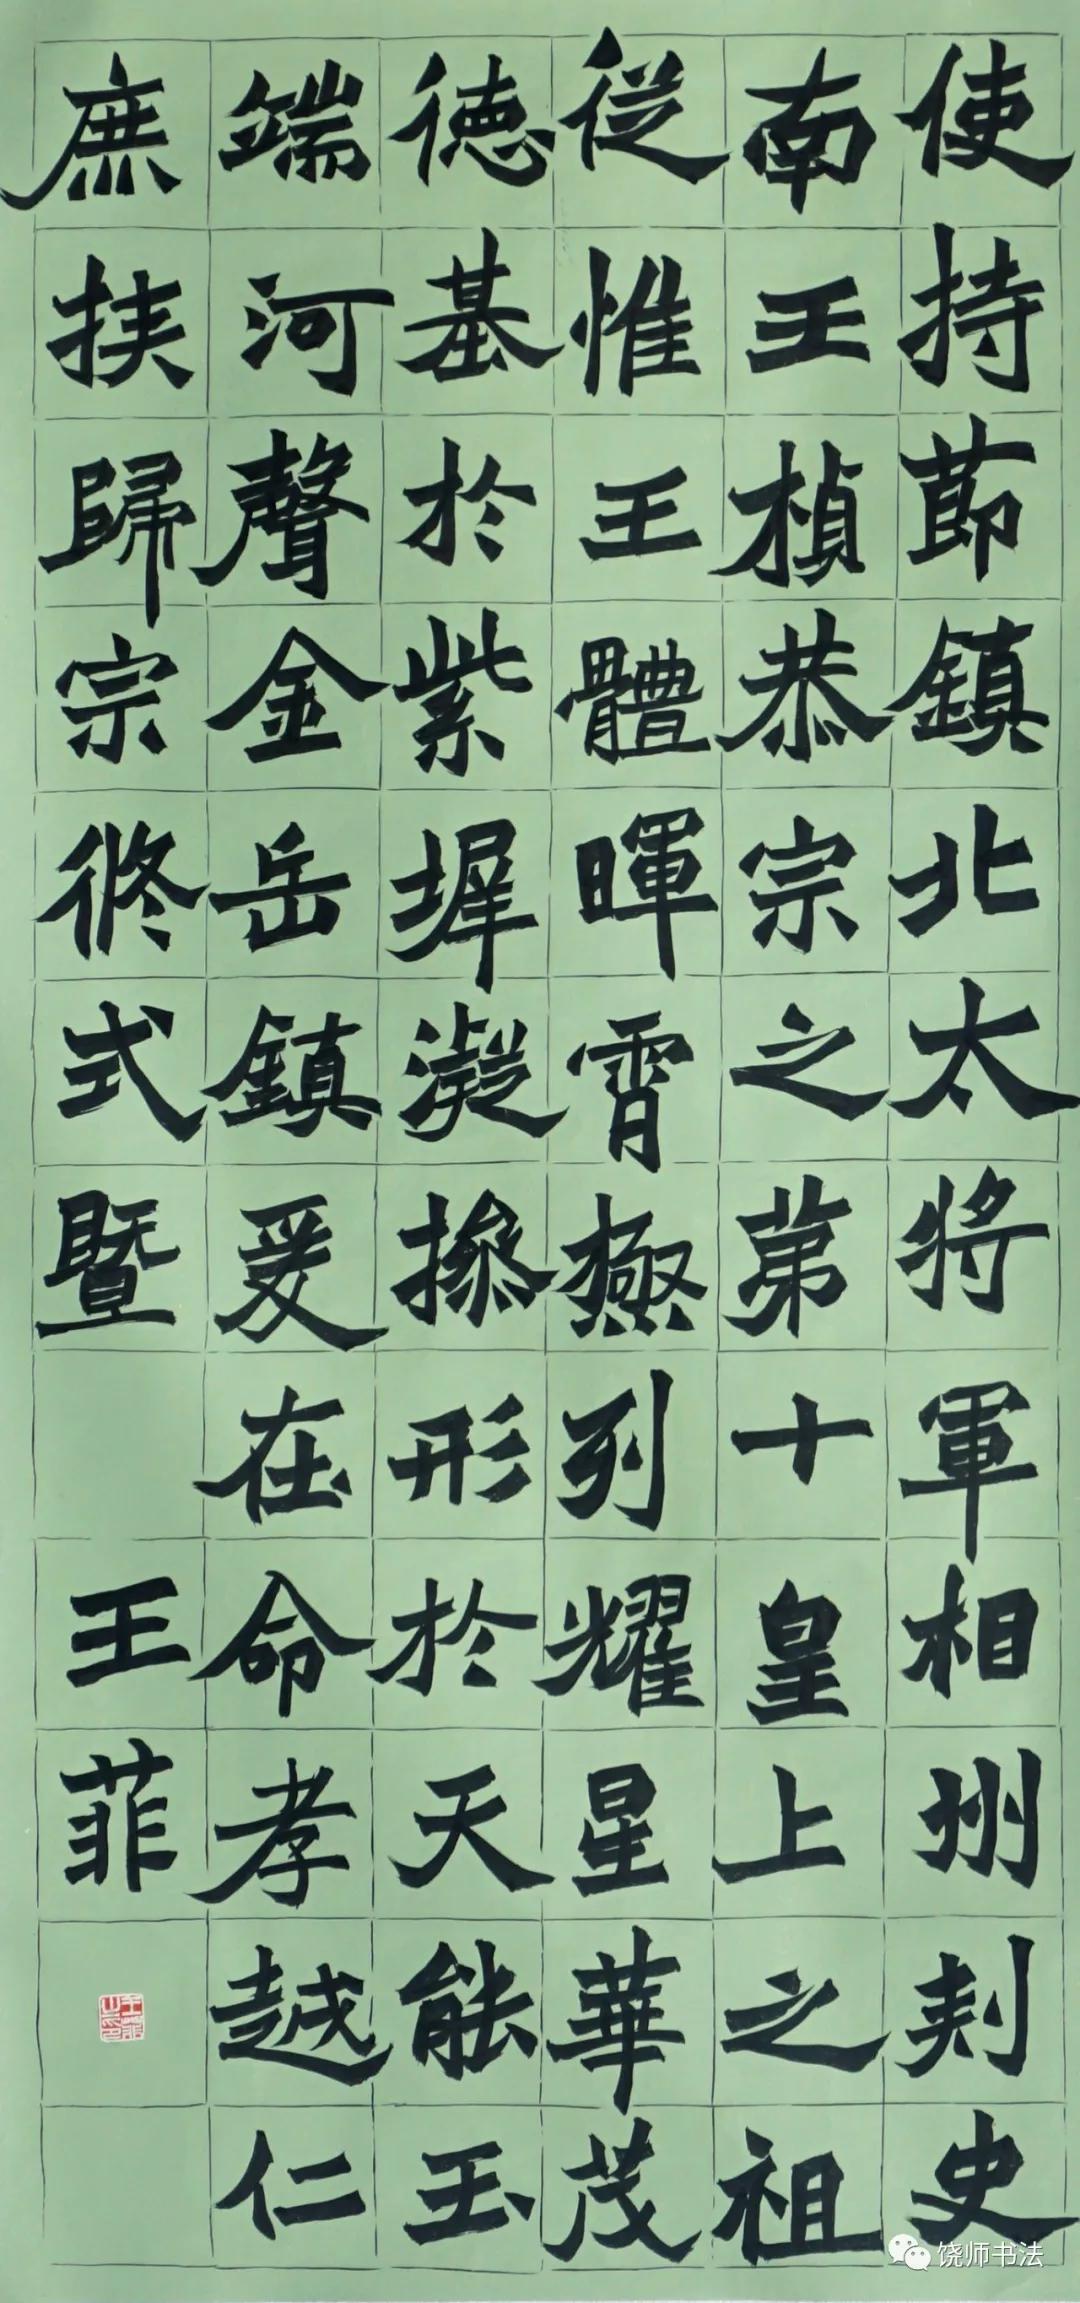 使持節鎮北太將軍相州刾史
南王楨恭宗之苐十皇上之祖
從惟王體暉霄極列耀星華茂
德基於紫墀凝摻形於天能玉
端河聲金岳鎮爰在命孝越仁
庶挾歸宗修式暨 王菲
饶师书法